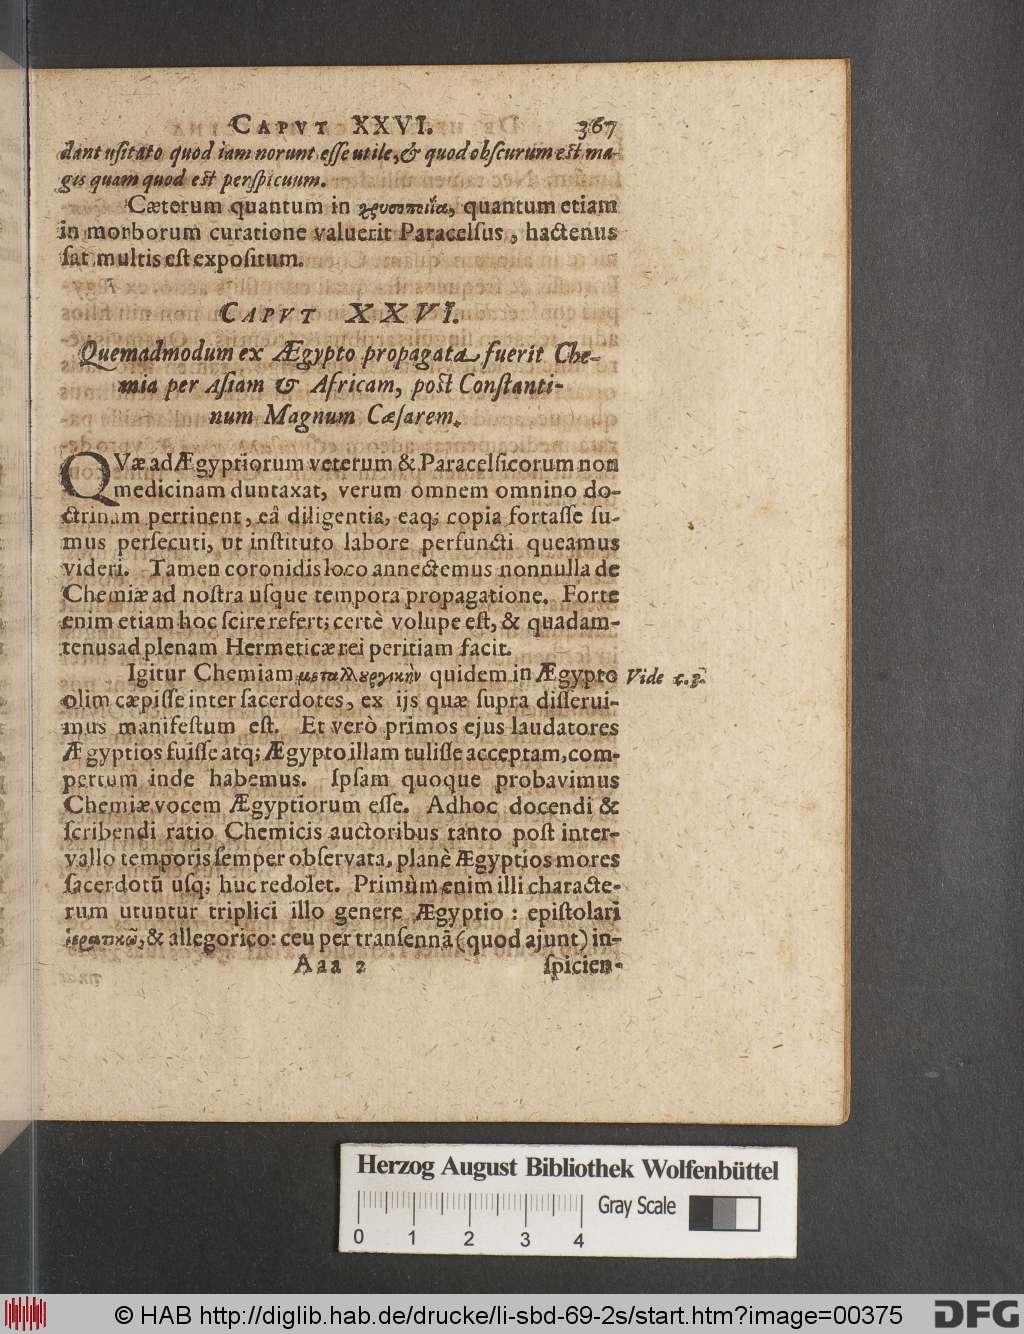 CAPVT XXVI. 367
dant usitato quod iam norunt esse utile, & quod obscurum est ma-
gis quam quod est perspicuum.
Cæterum quantum in χρυσοποιΐα, quantum etiam
in morborum curatione valuerit Paracelsus, hactenus
sat multis est expositum.
CAPVT XXVI.
Quemadmodum ex Ægypto propagata fuerit Che-
mia per Asiam & Africam, post Constanti-
num Magnum Cæsarem.
QVæ ad Ægyptiorum veterum & Paracelsicorum non
medicinam duntaxat, verum omnem omnino do-
ctrinam pertinent, eâ diligentia, eaq; copia fortasse su-
mus persecuti, ut instituto labore perfuncti queamus
videri. Tamen coronidis loco annectemus nonnulla de
Chemiæ ad nostra usque tempora propagatione. Forte
enim etiam hoc scire refert; certè volupe est, & quadam-
tenus ad plenam Hermeticæ rei peritiam facit.
Igitur Chemiam μεταλλουργικὴν quidem in Ægypto Vide c. 3.
olim cæpisse inter sacerdotes, ex ijs quæ supra disserui-
mus manifestum est. Et verò primos ejus laudatores
Ægyptios fuisse atq; Ægypto illam tulisse acceptam, com-
pertum inde habemus. Ipsam quoque probavimus
Chemiæ vocem Ægyptiorum esse. Adhoc docendi &
scribendi ratio Chemicis auctoribus tanto post inter-
vallo temporis semper observata, planè Ægyptios mores
sacerdotũ usq; huc redolet. Primùm enim illi characte-
rum utuntur triplici illo genere Ægyptio: epistolari
ἱερατικῶ, & allegorico: ceu per transennã (quod ajunt) in-
Aaa 2 spicien-
Herzog August Bibliothek Wolfenbüttel
Gray Scale
0 1 2 3 4
© HAB http://diglib.hab.de/drucke/li-sbd-69-2s/start.htm?image=00375 DFG